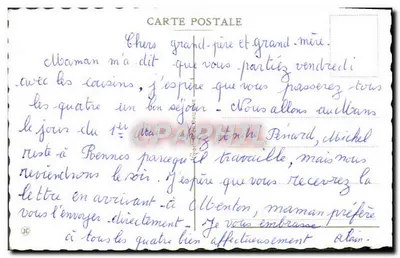 CARTE POSTALE
Chers grand-père et grand-mère.
Maman m'a dit que vous partiez vendredi
avec les cousins, j'espère que vous passerez tous
les quatre un bon séjour - Nous allons au Mans
le jour du 1er Mai chez Penard, Michel
reste à Rennes parsequ'il travaille, mais nous
reviendrons le soir. J'espère que vous recevrez la
lettre en arrivant à Menton, maman préfère
vous l'envoyer directement - Je vous embrasse
à tous les quatre bien affectueusement Alain.